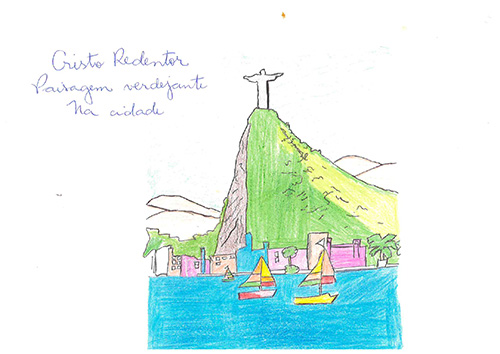 Cristo Redentor
Paisagem verdejante
Na cidade